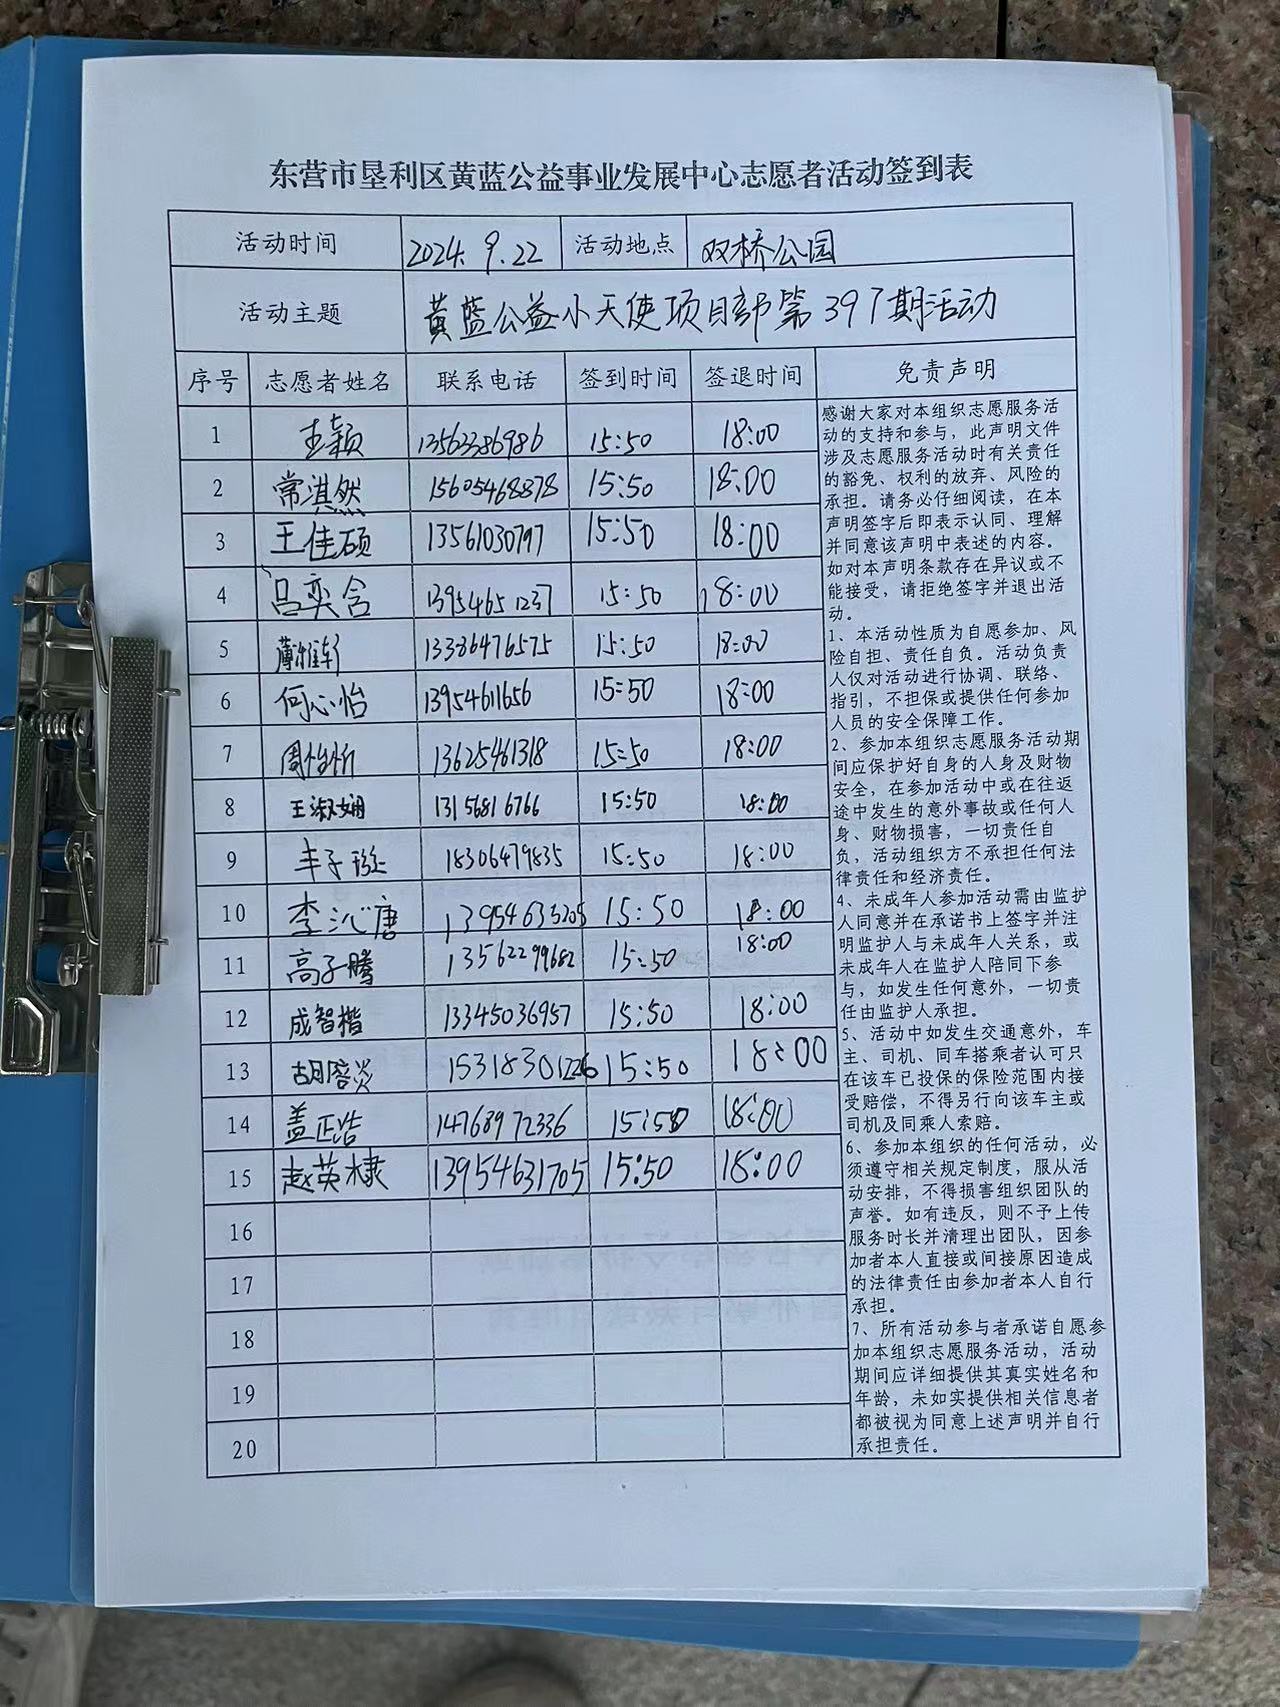 东营市垦利区黄蓝公益事业发展中心志愿者活动签到表
活动时间 2024.9.22 活动地点 双桥公园
活动主题 黄蓝公益小天使项目部第397期活动
序号 志愿者姓名 联系电话 签到时间 签退时间 免责声明
1 王颖 13563386986 15:50 18:00
2 常淇然 15605468878 15:50 18:00
3 王佳硕 13561030797 15:50 18:00
4 吕奕含 13954651237 15:50 18:00
5 薄 13386476575 15:50 18:00
6 何心怡 13954611656 15:50 18:00
7 周怡忻 13625461318 15:50 18:00
8 王淑娴 13156816766 15:50 18:00
9 丰子 18306479835 15:50 18:00
10 李沁唐 13954635205 15:50 18:00
11 高子腾 13562299682 15:50 18:00
12 成智楷 13345036957 15:50 18:00
13 胡 15318301226 15:50 18:00
14 盖正浩 14768972336 15:50 18:00
15 赵英棣 13954631705 15:50 18:00
16
17
18
19
20
感谢大家对本组织志愿服务活
动的支持和参与，此声明文件
涉及志愿服务活动时有关责任
的豁免、权利的放弃、风险的
承担。请务必仔细阅读，在本
声明签字后即表示认同、理解
并同意该声明中表述的内容。
如对本声明条款存在异议或不
能接受，请拒绝签字并退出活
动。
1、本活动性质为自愿参加、风
险自担、责任自负。活动负责
人仅对活动进行协调、联络、
指引，不担保或提供任何参加
人员的安全保障工作。
2、参加本组织志愿服务活动期
间应保护好自身的人身及财物
安全，在参加活动中或在往返
途中发生的意外事故或任何人
身、财物损害，一切责任自
负，活动组织方不承担任何法
律责任和经济责任。
4、未成年人参加活动需由监护
人同意并在承诺书上签字并注
明监护人与未成年人关系，或
未成年人在监护人陪同下参
与，如发生任何意外，一切责
任由监护人承担。
5、活动中如发生交通意外，车
主、司机、同车搭乘者认可只
在该车已投保的保险范围内接
受赔偿，不得另行向该车主或
司机及同乘人索赔。
6、参加本组织的任何活动，必
须遵守相关规定制度，服从活
动安排，不得损害组织团队的
声誉。如有违反，则不予上传
服务时长并清理出团队，因参
加者本人直接或间接原因造成
的法律责任由参加者本人自行
承担。
7、所有活动参与者承诺自愿参
加本组织志愿服务活动，活动
期间应详细提供其真实姓名和
年龄，未如实提供相关信息者
都被视为同意上述声明并自行
承担责任。